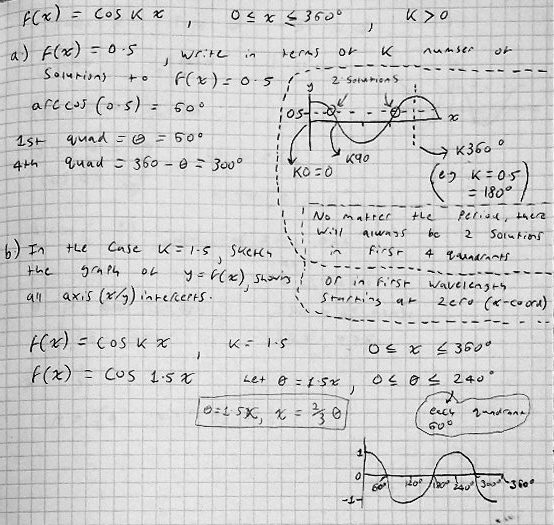 f(x) = cos K x , 0 ≤ x ≤ 360° , K > 0
a) f(x) = 0.5 , write in terms of K number of
Solutions to f(x) = 0.5
arccos (0.5) = 60°
1st quad = θ = 60°
4th quad = 360 - θ = 300°
2 solutions
y
0.5
x
K0 = 0
K90
K360°
(eg K = 0.5
= 180°)
No matter the period, there
will always be 2 solutions
in first 4 quadrants
or in first wavelength
starting at zero (x-coord)
b) In the case K = 1.5, sketch
the graph of y = f(x), showing
all axis (x/y) intercepts.
f(x) = cos K x , K = 1.5 0 ≤ x ≤ 360°
f(x) = cos 1.5 x Let θ = 1.5x , 0 ≤ θ ≤ 240°
θ = 1.5x, x = 2/3 θ
each quadrant
60°
1
0
-1
60° 120° 180° 240° 300° 360°